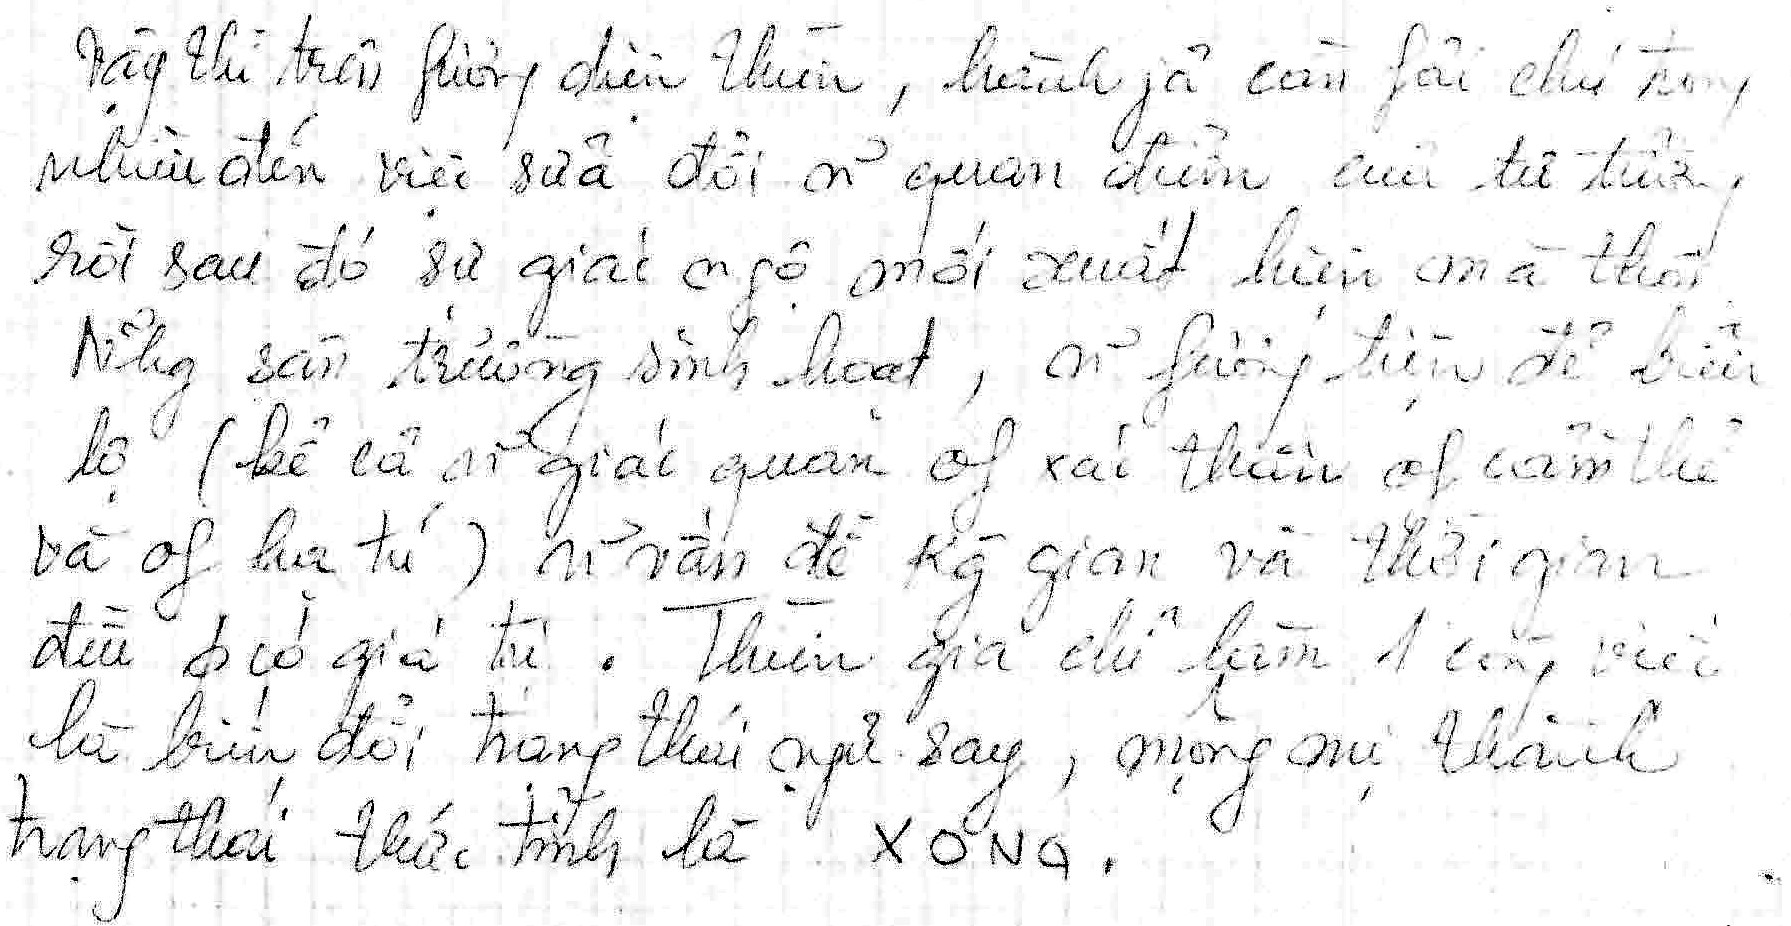 Vậy thì trên fương diện thiền, hành jả cần fải chú trọng
nhiều đến việc sửa đổi n~ quan điểm của tư tưởng
rồi sau đó sự giác ngộ mới xuất hiện mà thôi.
N~hg sân trường sinh hoạt, n~ fương tiện để biểu
lộ (kể cả n~ giác quan of xác thân of cảm thể
và of hạ trí) n~ vấn đề kg gian và thời gian
đều ó có giá trị. Thiền giả chỉ làm 1 công việc
là biến đổi trạng thái ngủ say, mộng mị thành
trạng thái thức tỉnh là XONG.